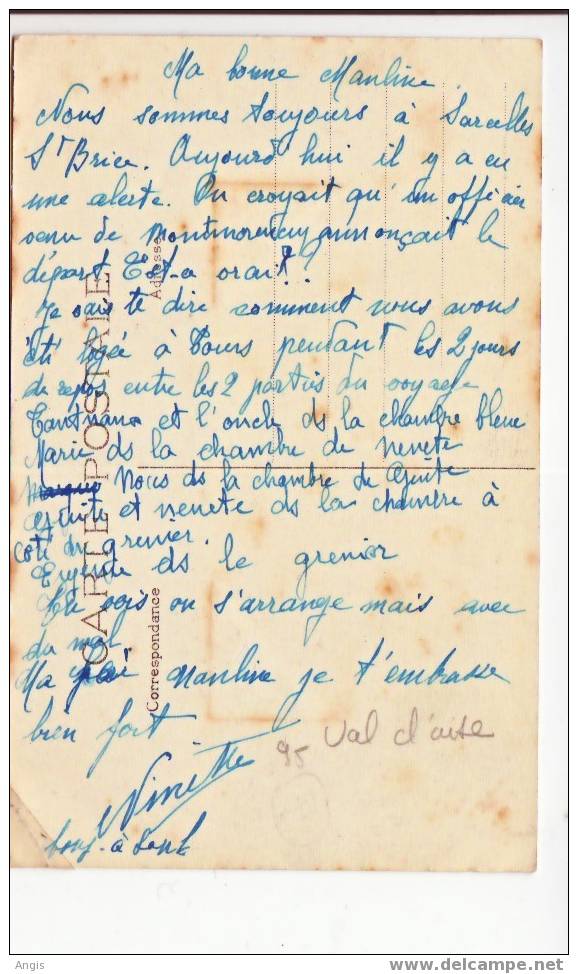 Ma bonne Manline
Nous sommes toujours à Sarcelles
St Brice. Aujourd'hui il y a eu
une alerte. On croyait qu'un officier
venu de Montmorency annonçait le
départ C'est-a vrai!!?
Je vais te dire comment nous avons
été logée à Tours pendant les 2 jours
de repos entre les 2 partis du voyage
et l'oncle ds la chambre bleue
Marie ds la chambre de nenete
Nous ds la chambre de
et nenete ds la chambre à
coté du grenier.
Eugenie ds le grenier
Tu vois on s'arrange mais avec
du mal
Ma Manline je t'embrasse
bien fort.
Ninette
à
95 Val d'oise
CARTE POSTALE
Correspondance
Adresse
Angis
www.delcampe.net